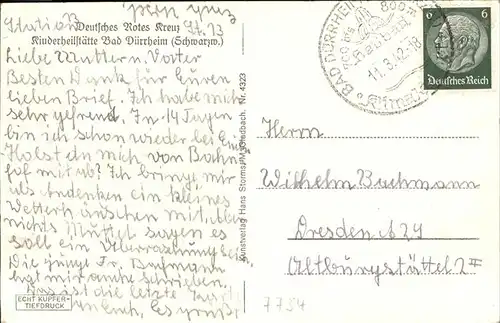 Station B
Deutsches Rotes Kreuz
Kinderheilstätte Bad Dürrheim (Schwarzw.)
St. B
Liebe Muttern. Vater
Besten Dank für Euren
lieben Brief. Ich habe mich
sehr gefreud. In 14 Tagen
bin ich schon wieder bei Euch
Holst du mich von Bahn
hof mit ab? Ich bringe mir
als Andenken ein kleines
Wetterh äuschen mit, aber
nichts Muttel sagen es
soll ein Überraschung sein
Die junge Fr. Buhmann
last mir auch schreiben.
Das ist die letzte
Es grüßt
ECHT KUPFER-
TIEFDRUCK
Kunstverlag Hans Storms, M.Gladbach. Nr. 4323
BAD DÜRRHEIM
800
11.3.42.-18
6 6
Deutsches Reich
Herrn
Wilhelm Buchmann
Dresden A 24
Altburgstättel 2 II
7754